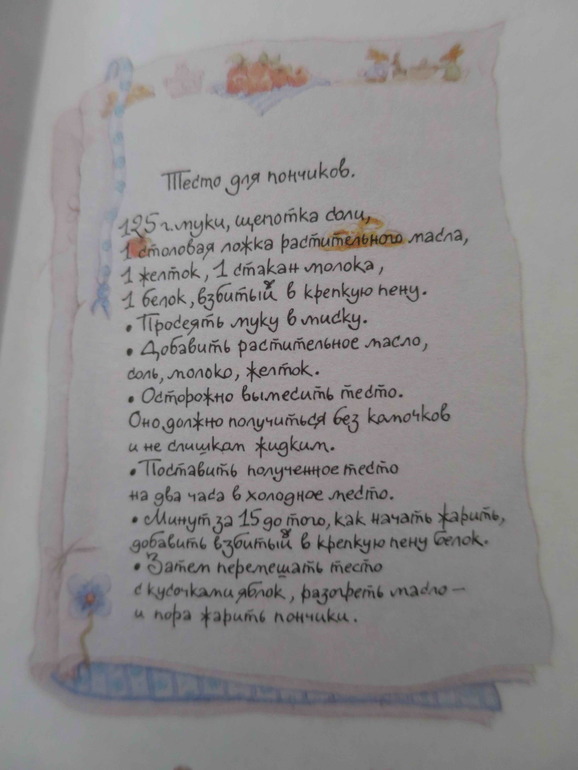 Тесто для пончиков.
125 г. муки, щепотка соли,
1 столовая ложка растительного масла,
1 желток, 1 стакан молока,
1 белок, взбитый в крепкую пену.
• Просеять муку в миску.
• Добавить растительное масло,
соль, молоко, желток.
• Осторожно вымесить тесто.
Оно должно получиться без комочков
и не слишком жидким.
• Поставить полученное тесто
на два часа в холодное место.
• Минут за 15 до того, как начать жарить,
добавить взбитый в крепкую пену белок.
• Затем перемешать тесто
с кусочками яблок, разогреть масло —
и пора жарить пончики.